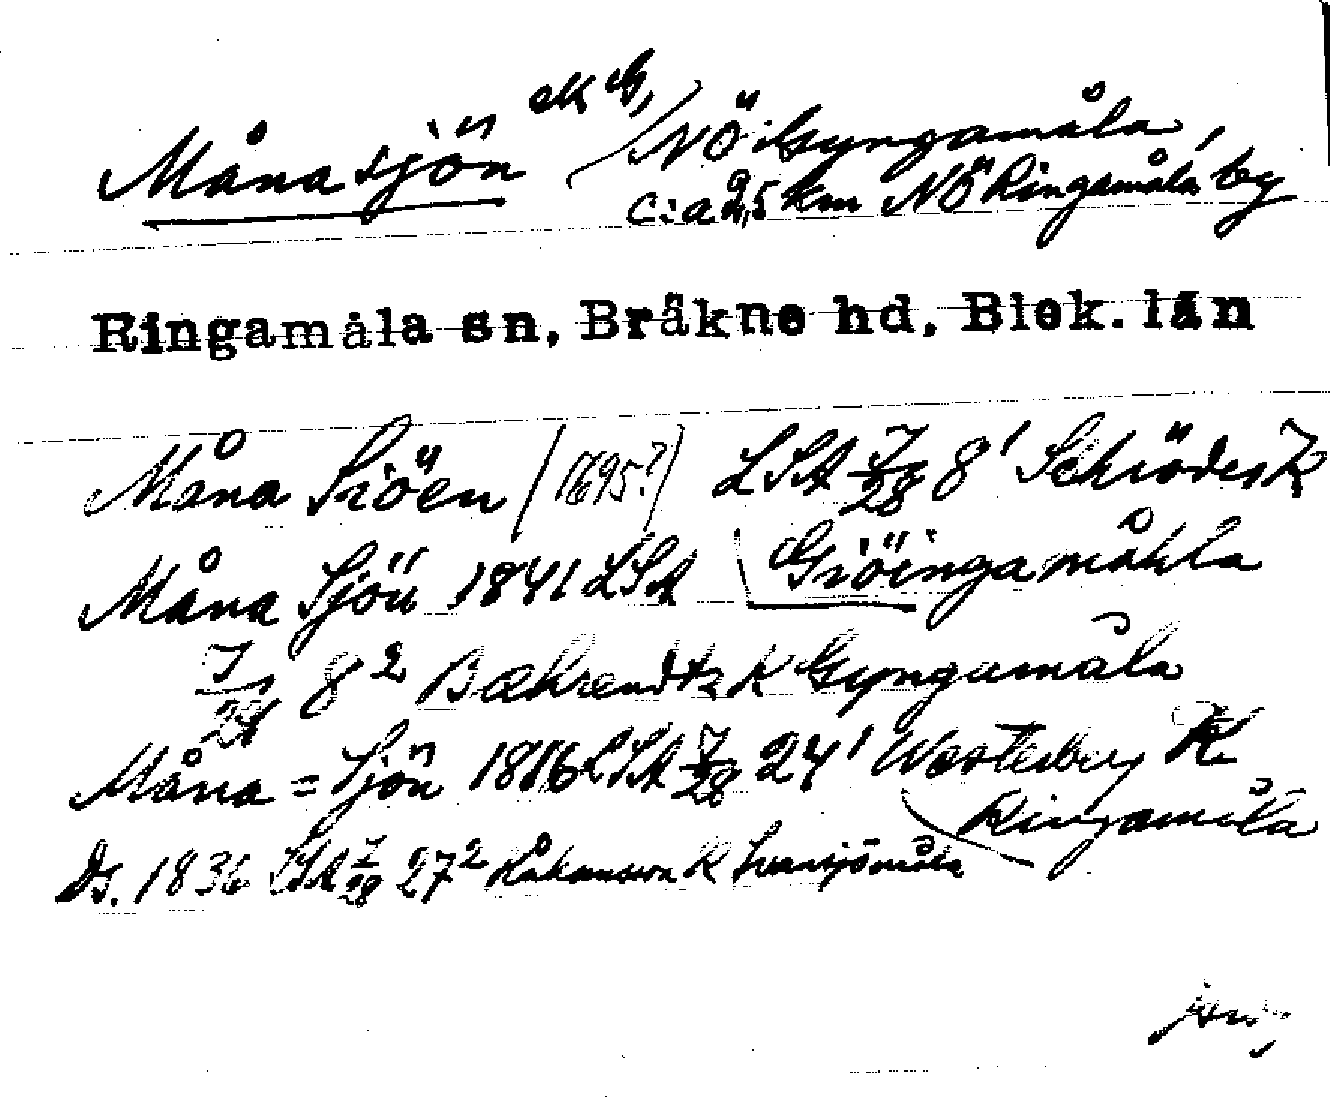 Månasjön ek G, / NÖ Gyngamåla,
c:a 2,5 km NÖ Ringamåla by
Ringamåla sn, Bräkne hd, Blek. län
Måna Siöen (1695?) LSA 7/28 8¹ Schröders K
Måna Sjön 1841 LSA Giöingamåhla
7/28 8² Bæhrendtz K Gyngamåla
Måna = Sjön 1816 LSA 7/28 24¹ Westerberg K
Ringamåla
Ds. 1836 LSA 7/28 27² Håkanson K